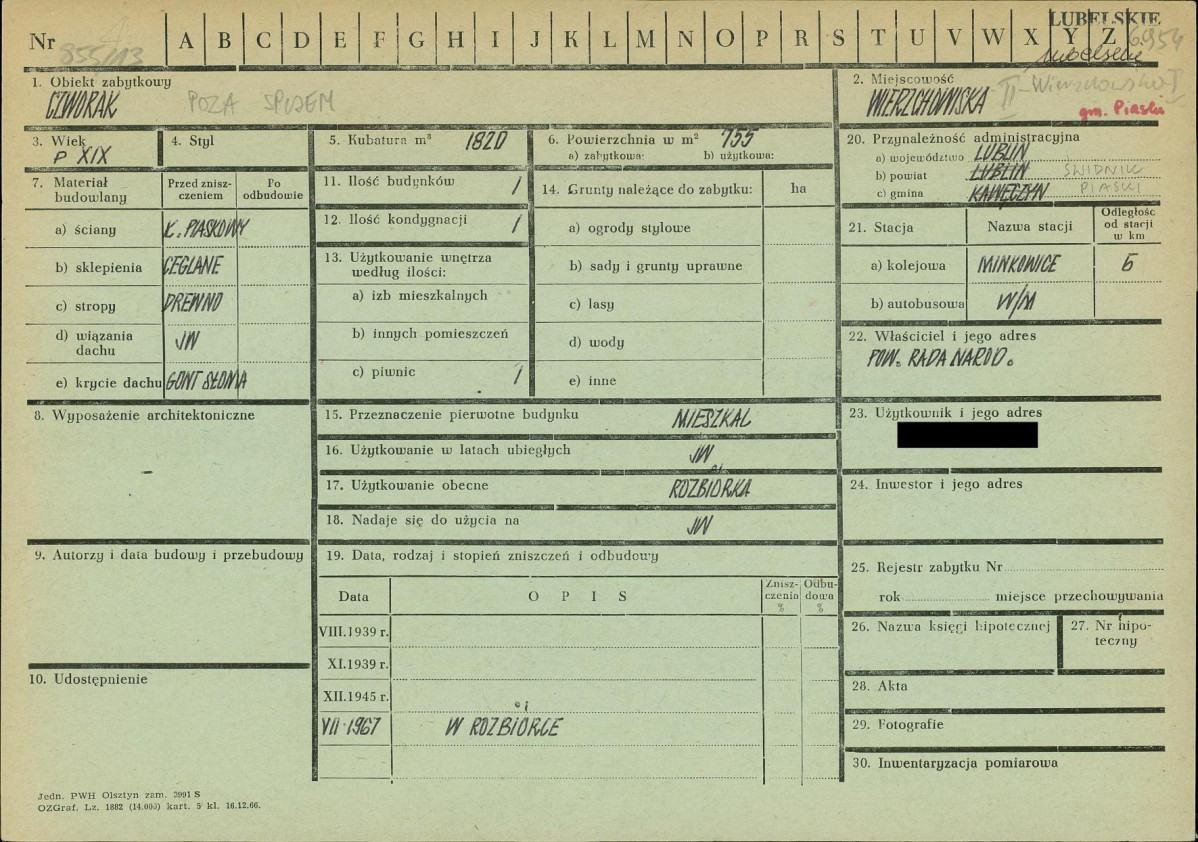 LUBELSKIE
Nr 855/13 A B C D E F G H I J K L M N O P R S T U V W X Y Z 6954
Lubelskie
1. Obiekt zabytkowy
CZWORAK POZA SPISEM
2. Miejscowość
WIERZCHOWISKA II
gm. Piaski
3. Wiek
P XIX
4. Styl
5. Kubatura m³ 1820
6. Powierzchnia w m² 755
a) zabytkowa: b) użytkowa:
20. Przynależność administracyjna
a) województwo LUBLIN
b) powiat LUBLIN ŚWIDNIK
c) gmina KAWĘCZYN PIASKI
7. Materiał budowlany
Przed zniszczeniem
Po odbudowie
a) ściany K. PIASKOWY
b) sklepienia CEGLANE
c) stropy DREWNO
d) wiązania dachu JW
e) krycie dachu GONT SŁOMA
11. Ilość budynków 1
12. Ilość kondygnacji 1
13. Użytkowanie wnętrza
według ilości:
a) izb mieszkalnych
b) innych pomieszczeń
c) piwnic 1
14. Grunty należące do zabytku: ha
a) ogrody stylowe
b) sady i grunty uprawne
c) lasy
d) wody
e) inne
21. Stacja Nazwa stacji Odległość od stacji w km
a) kolejowa MINKOWICE 5
b) autobusowa W/M
22. Właściciel i jego adres
POW. RADA NAROD.
8. Wyposażenie architektoniczne
–
15. Przeznaczenie pierwotne budynku MIESZKAL
16. Użytkowanie w latach ubiegłych JW
17. Użytkowanie obecne ROZBIORKA
18. Nadaje się do użycia na JW
23. Użytkownik i jego adres
24. Inwestor i jego adres
9. Autorzy i data budowy i przebudowy
19. Data, rodzaj i stopień zniszczeń i odbudowy
Data OPIS Zniszczenia % Odbudowa %
VIII.1939 r.
XI.1939 r.
XII.1945 r.
VII·1967 W ROZBIORCE
25. Rejestr zabytku Nr
rok miejsce przechowywania
26. Nazwa księgi hipotecznej
27. Nr hipoteczny
10. Udostępnienie
28. Akta
29. Fotografie
30. Inwentaryzacja pomiarowa
Jedn. PWH Olsztyn zam. 3991 S
OZGraf. Lz. 1882 (14.000) kart. 5 kl. 16.12.66.